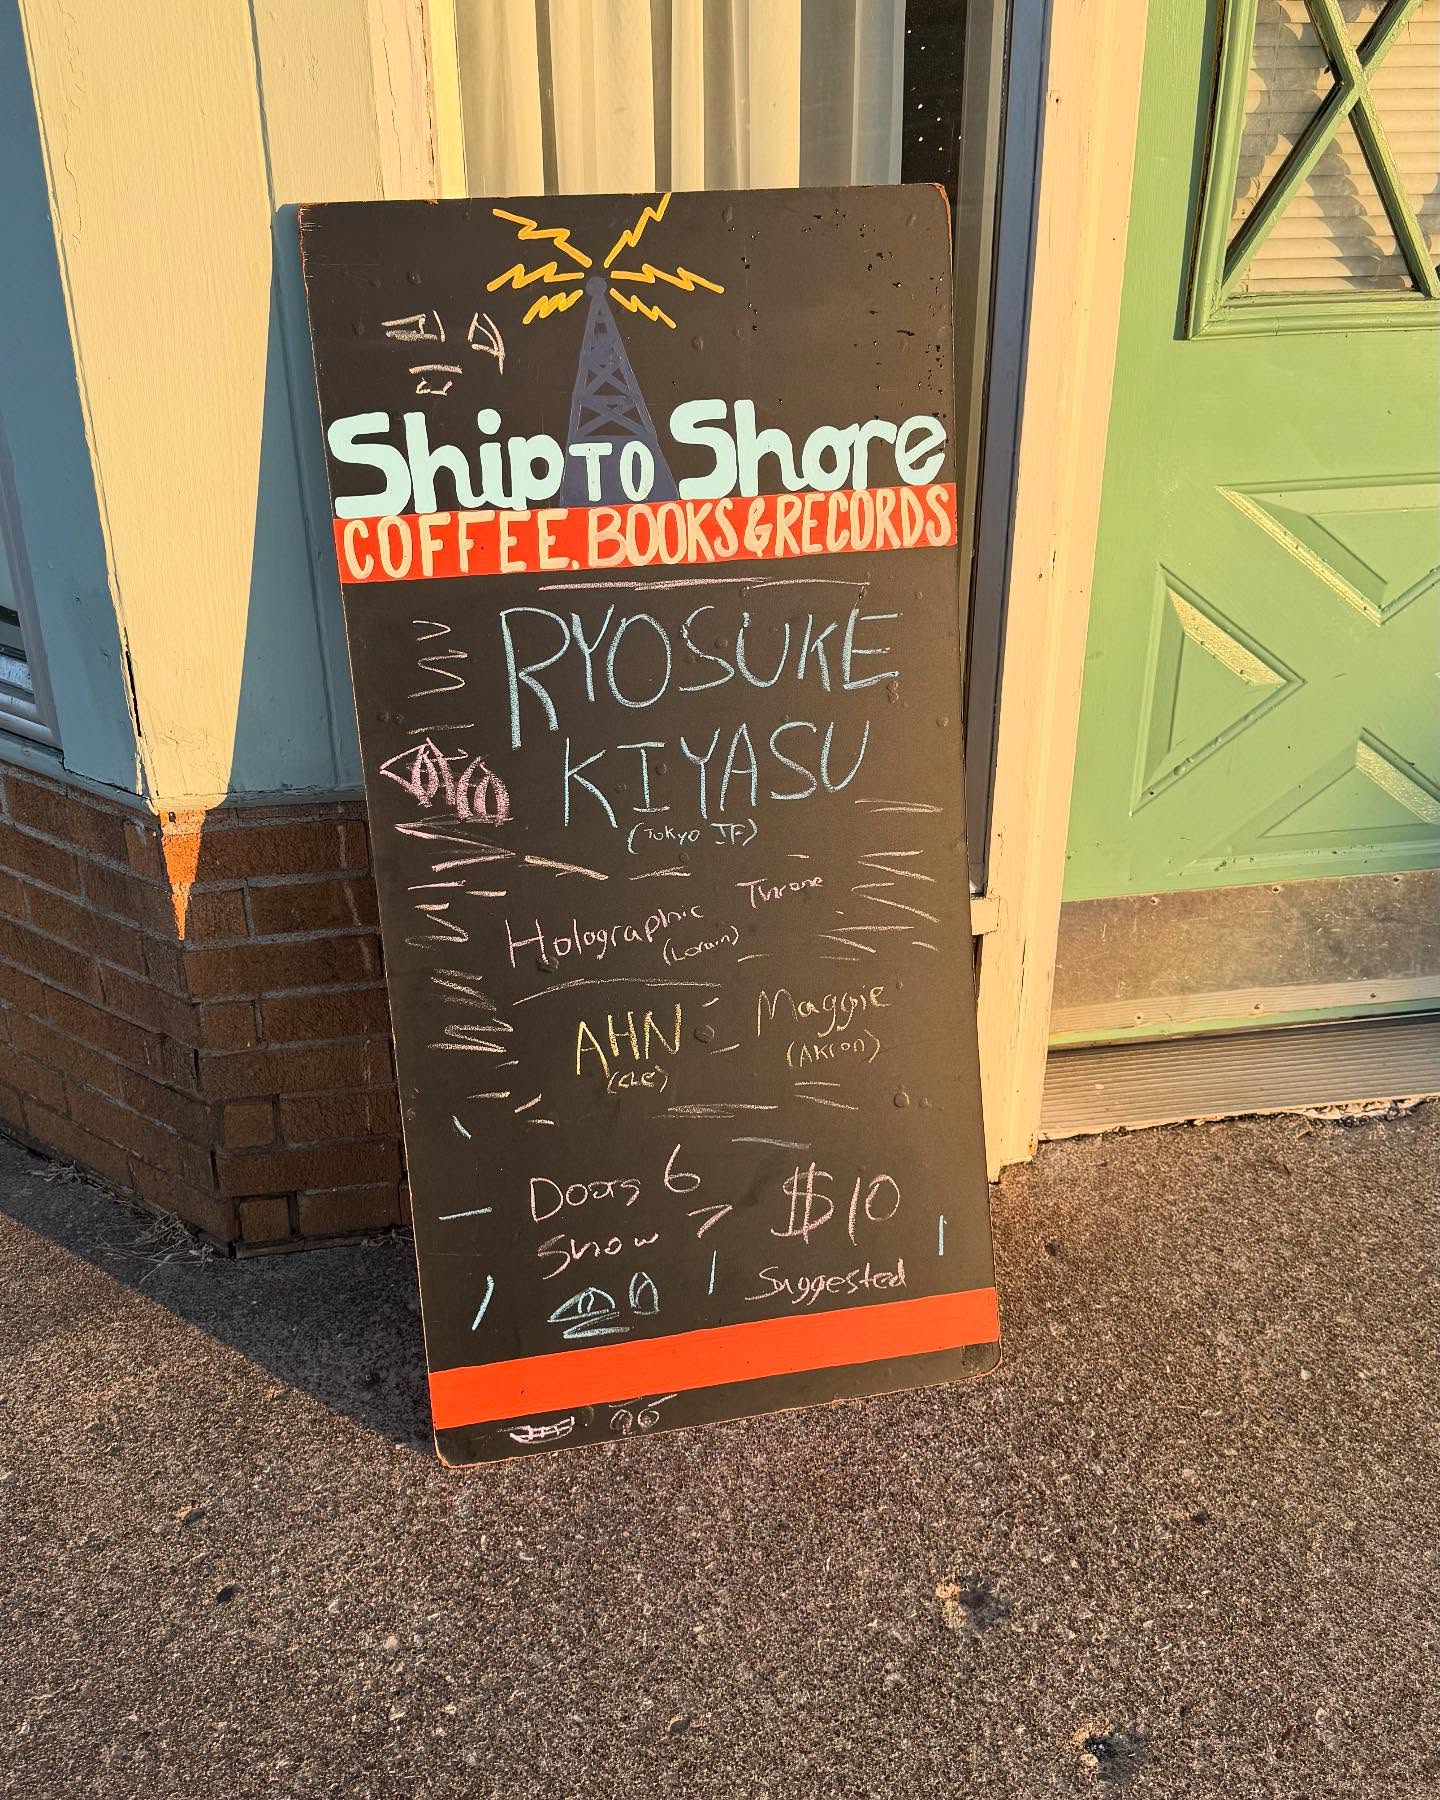 Ship TO Shore
COFFEE, BOOKS & RECORDS
RYOSUKE
KIYASU
(TOKYO JP)
Holographic Throne
(Lorain)
AHN Maggie
(CLE) (AKron)
Doors 6 $10
Show 7
Suggested